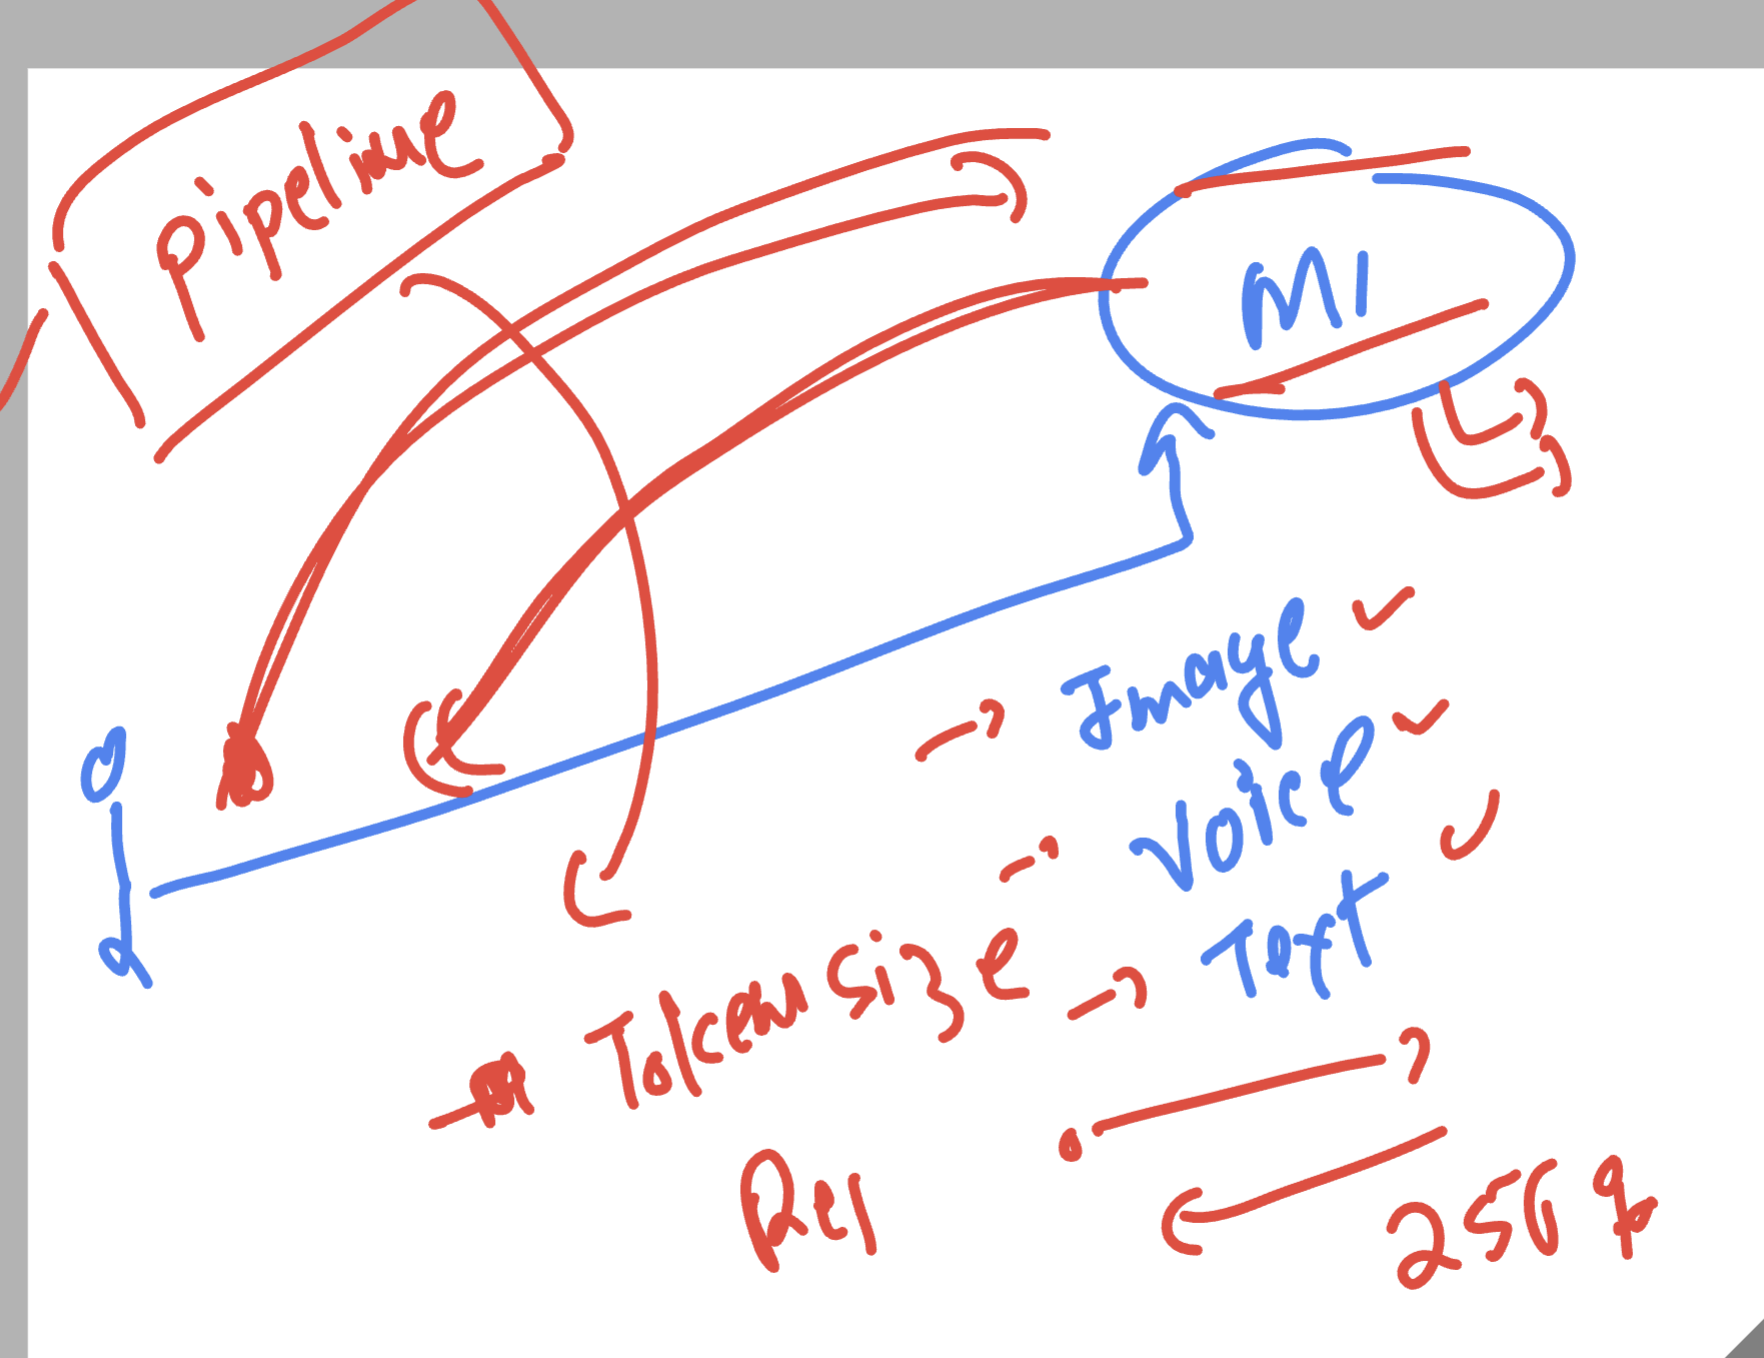 Pipeline
M1
Image
Voice
Text
Token Size
256